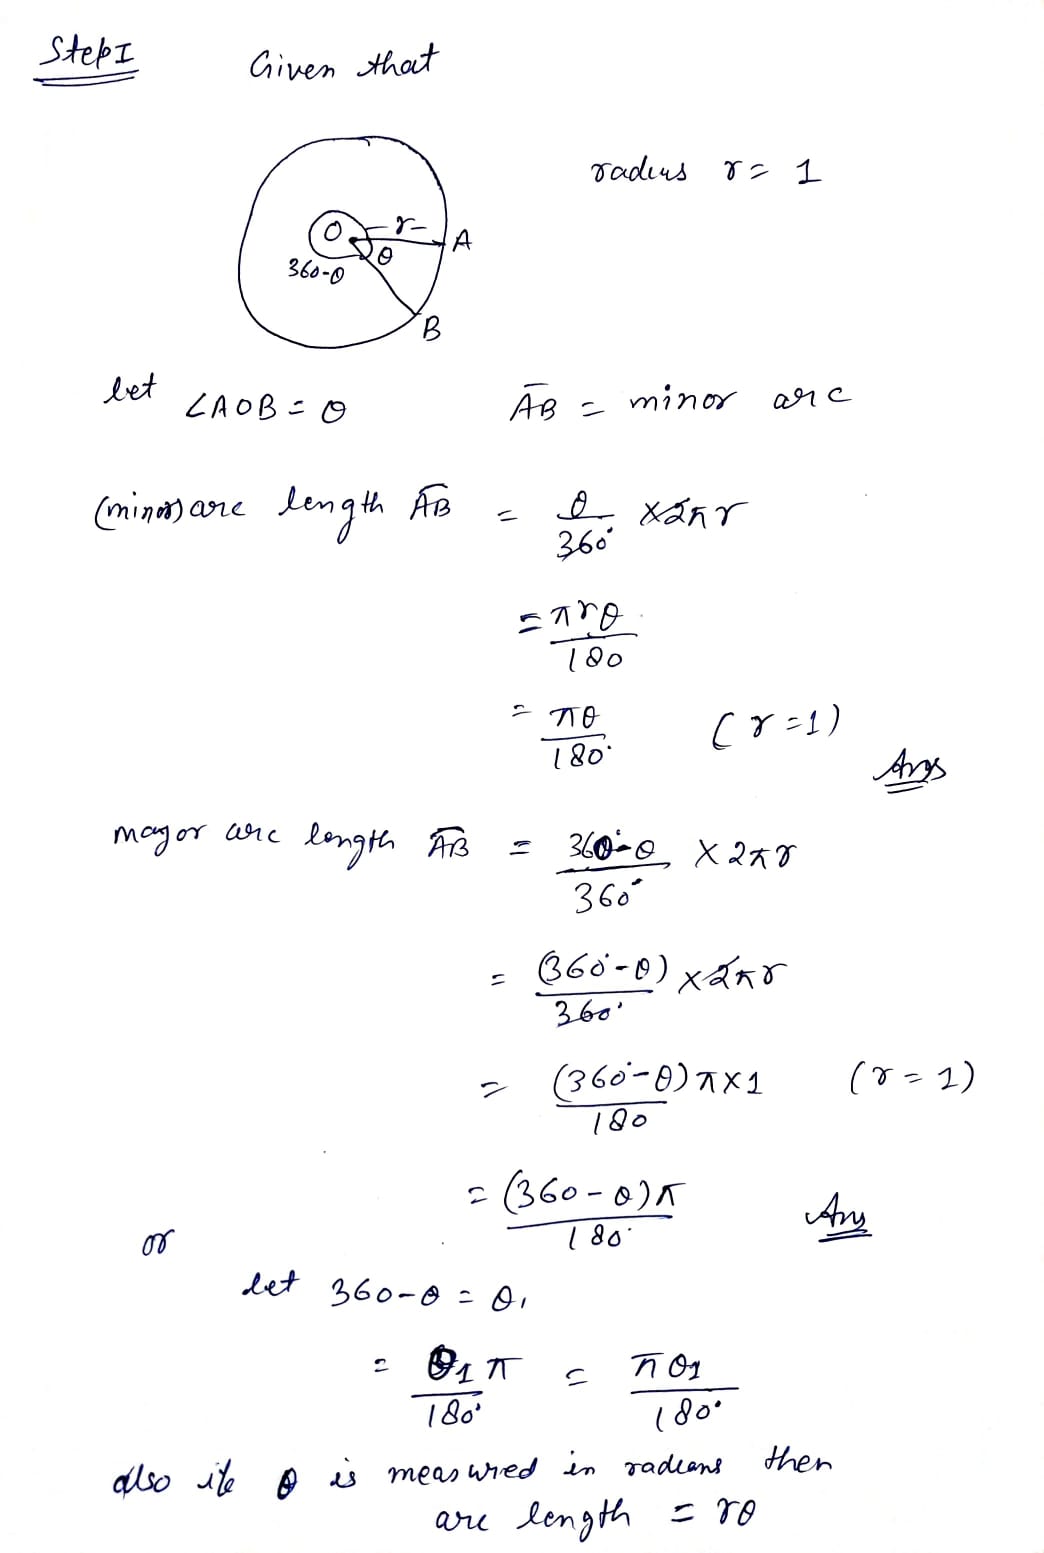 Step I
Given that
radius r = 1
O r A
θ
360-θ
B
let ∠AOB = θ
A̅B̅ = minor arc
(minor) arc length A̅B̅ = θ/360° × 2πr
= πrθ/180
= πθ/180° (r = 1)
Ans
mayor arc length A̅B̅ = 360°-θ/360° × 2πr
= (360°-θ)/360° × 2πr
= (360°-θ)π×1/180 (r = 1)
= (360-θ)π/180°
Ans
or
let 360-θ = θ₁
= θ₁π/180° = πθ₁/180°
also if θ is measured in radians then
arc length = rθ